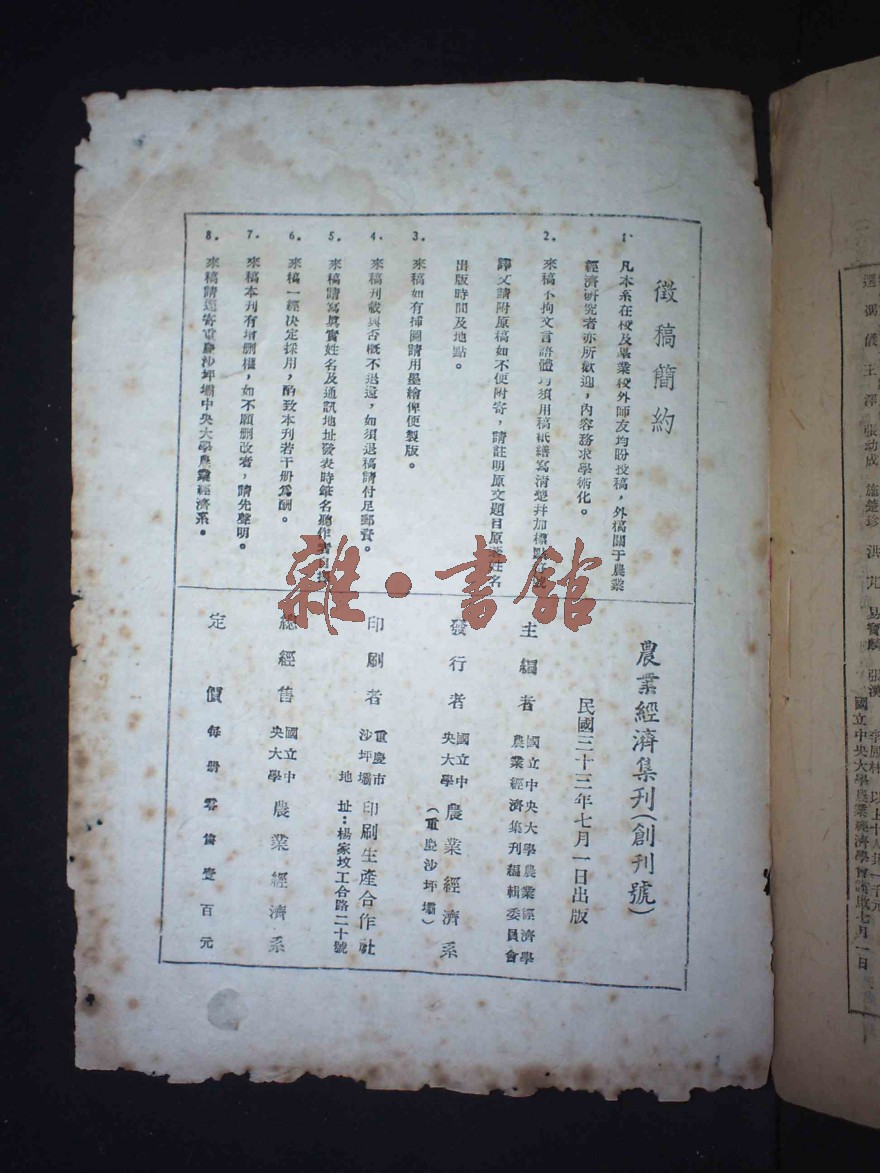 徵稿簡約
1. 凡本系在校及畢業校外師友均盼投稿，外稿關于農業
經濟研究者亦所歡迎，內容務求學術化。
2. 來稿不拘文言語體均須用稿紙繕寫清楚并加標點
譯文請附原稿如不便附寄，請註明原文題目原著姓名
出版時間及地點。
3. 來稿如有插圖請用墨繪俾便製版。
4. 來稿刊載與否概不退還，如須退稿請付足郵費。
5. 來稿請寫眞實姓名及通訊地址發表時筆名聽作者自
6. 來稿一經決定採用，酌致本刊若干册爲酬。
7. 來稿本刊有增删權，如不願删改者，請先聲明。
8. 來稿請逕寄重慶沙坪壩中央大學農業經濟系。
農業經濟集刊（創刊號）
民國三十三年七月一日出版
主編者 國立中央大學農業經濟學
農業經濟集刊編輯委員會
發行者 國立中央大學 農業經濟系
（重慶沙坪壩）
印刷者 重慶市沙坪壩 印刷生產合作社
地址：楊家坟工合路二十號
總經售 國立中央大學 農業經濟系
定價 每册零售壹百元
雜·書館
李 以上十人共一千元
國立中央大學農業經濟學會謹啟七月一日